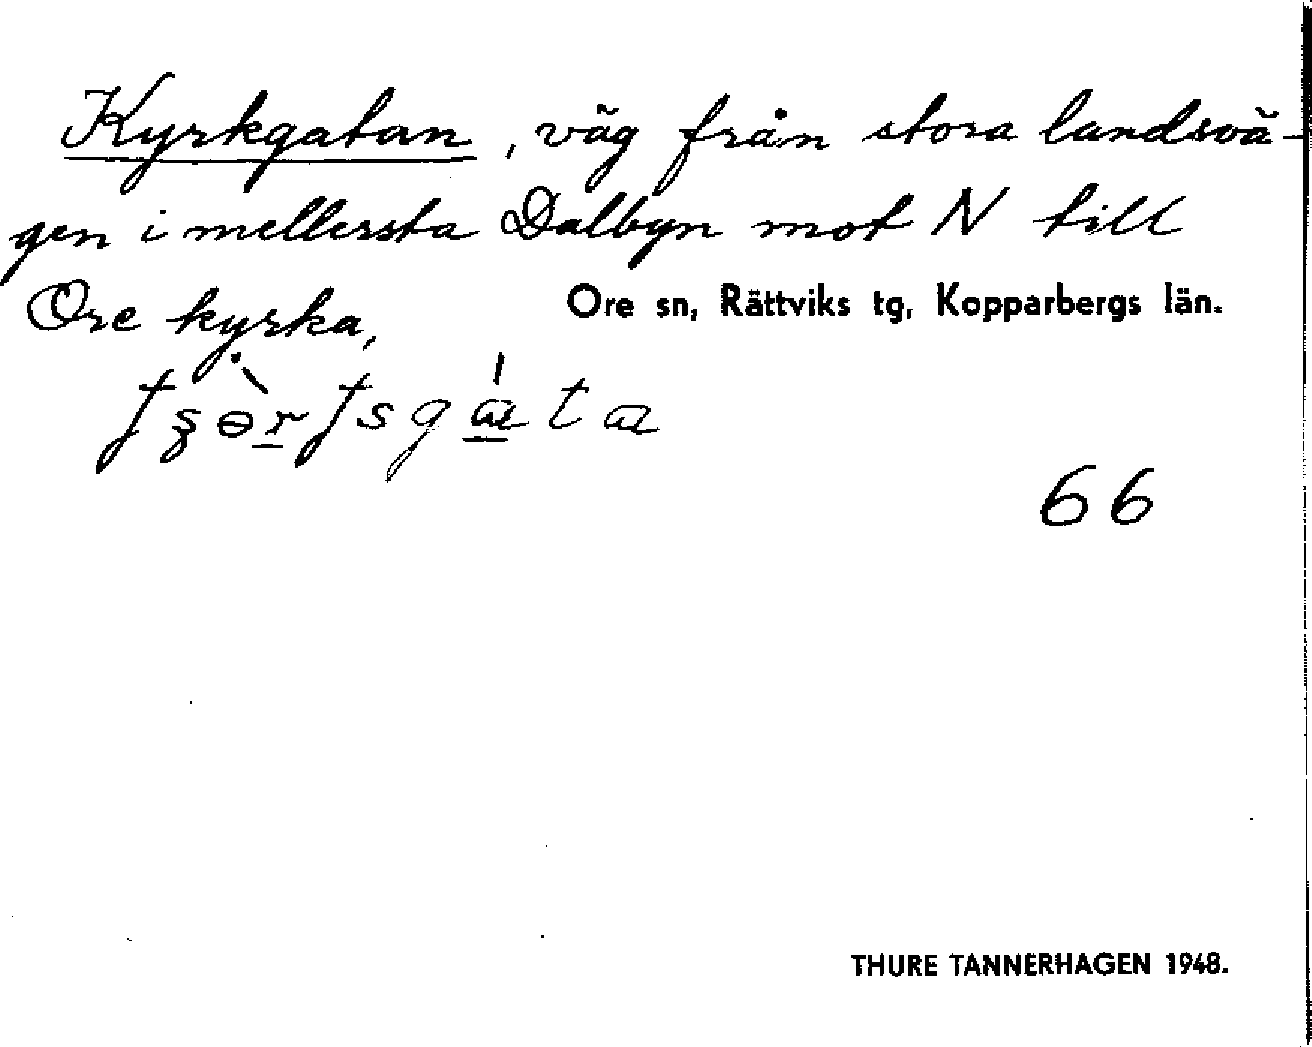 Kyrkgatan, väg från stora landsvä-
gen i mellersta Dalbyn mot N till
Ore kyrka,
Ore sn, Rättviks tg, Kopparbergs län.
66
THURE TANNERHAGEN 1948.